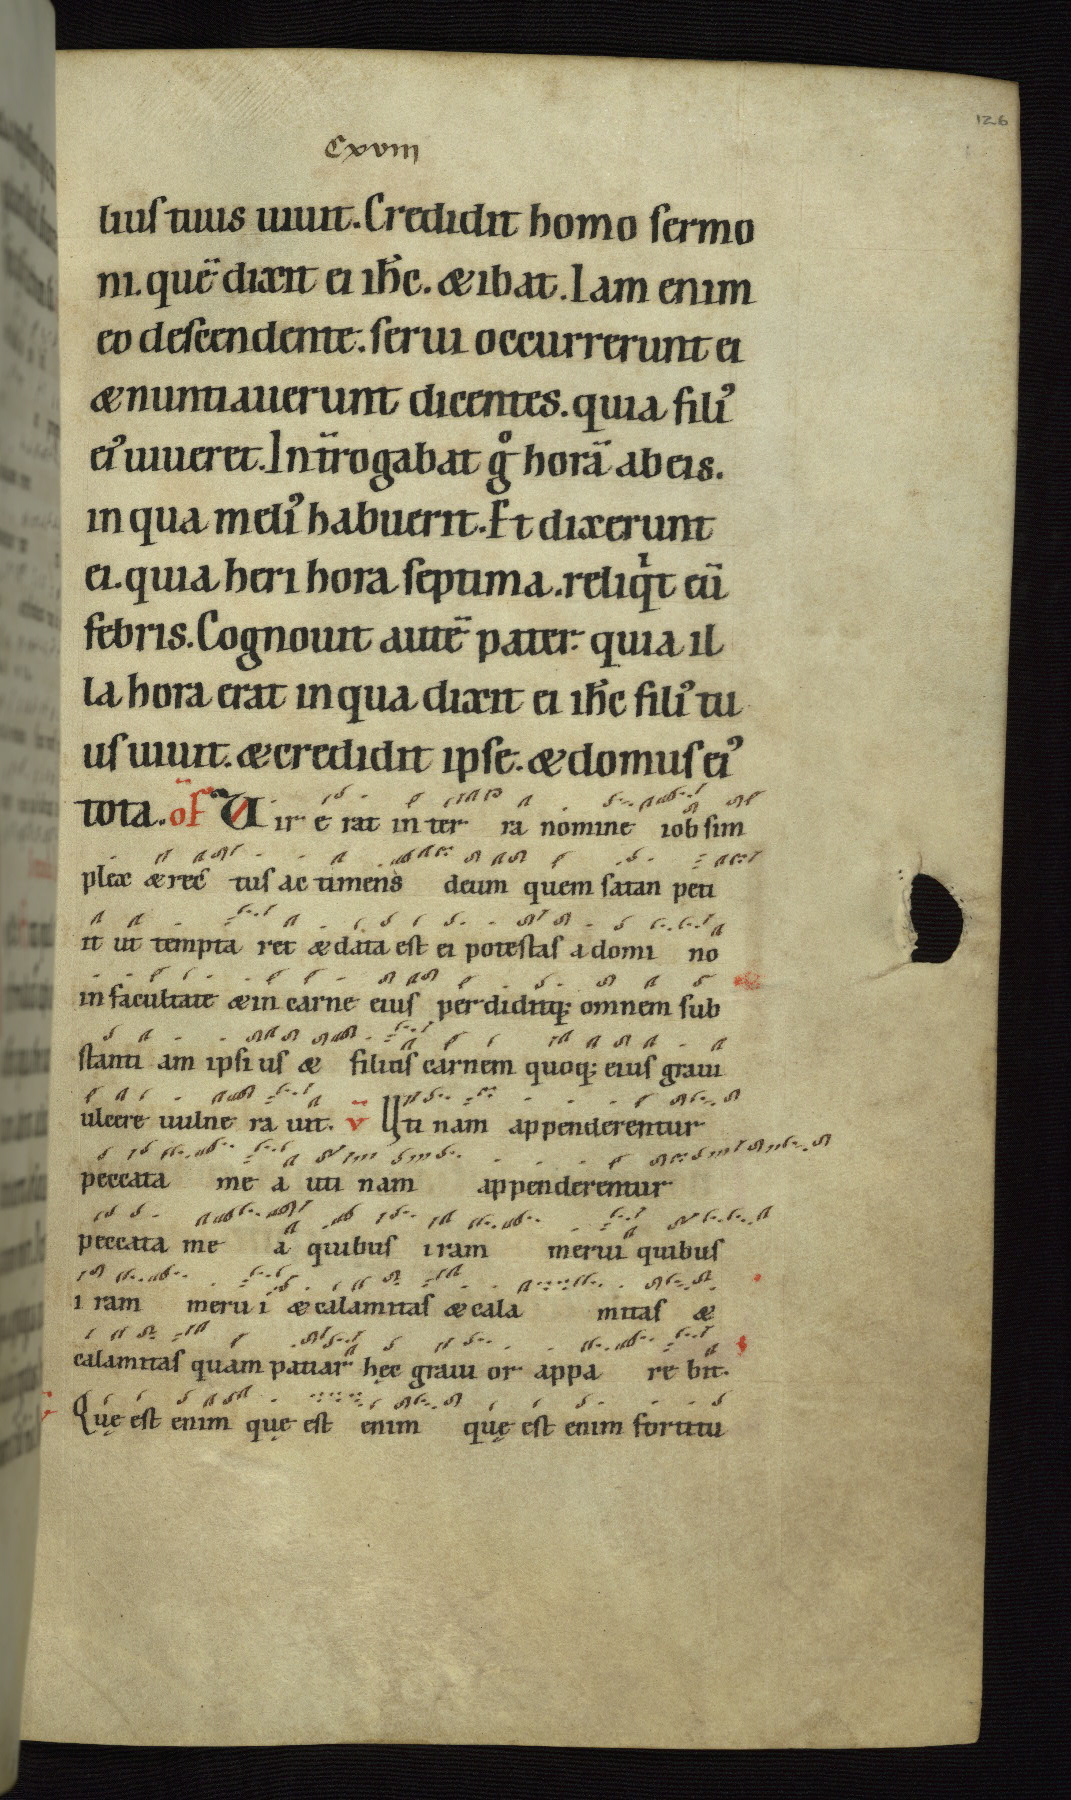 126
Cxviii
lius tuus uiuit. Credidit homo sermo
ni. quē dixit ei ih̄c. & ibat. Iam enim
eo descendente. serui occurrerunt ei
& nuntiauerunt dicentes. quia filiꝰ
eiꝰ uiueret. Int̄rogabat gͦ horā ab eis.
in qua meliꝰ habuerit. Et dixerunt
ei. quia heri hora septima. reliqͥt eū
febris. Cognouit autē pater. quia il
la hora erat in qua dixit ei ih̄c filiꝰ tu
us uiuit. & credidit ipse. & domus eiꝰ
tota. of̄ Uir erat in terra nomine iob sim
plex & rec tus ac timens deum quem satan peti
it ut tempta ret & data est ei potestas a domi no
in facultate & in carne eius perdiditq; omnem sub
stanti am ipsi us & filius carnem quoq; eius graui
ulcere uulne ra uit. v̄ Uti nam appenderentur
peccata me a uti nam appenderentur
peccata me a quibus iram merui quibus
i ram meru i & calamitas & cala mitas &
calamitas quam patiar hęc graui or appa re bit.
Quę est enim quę est enim quę est enim fortitu